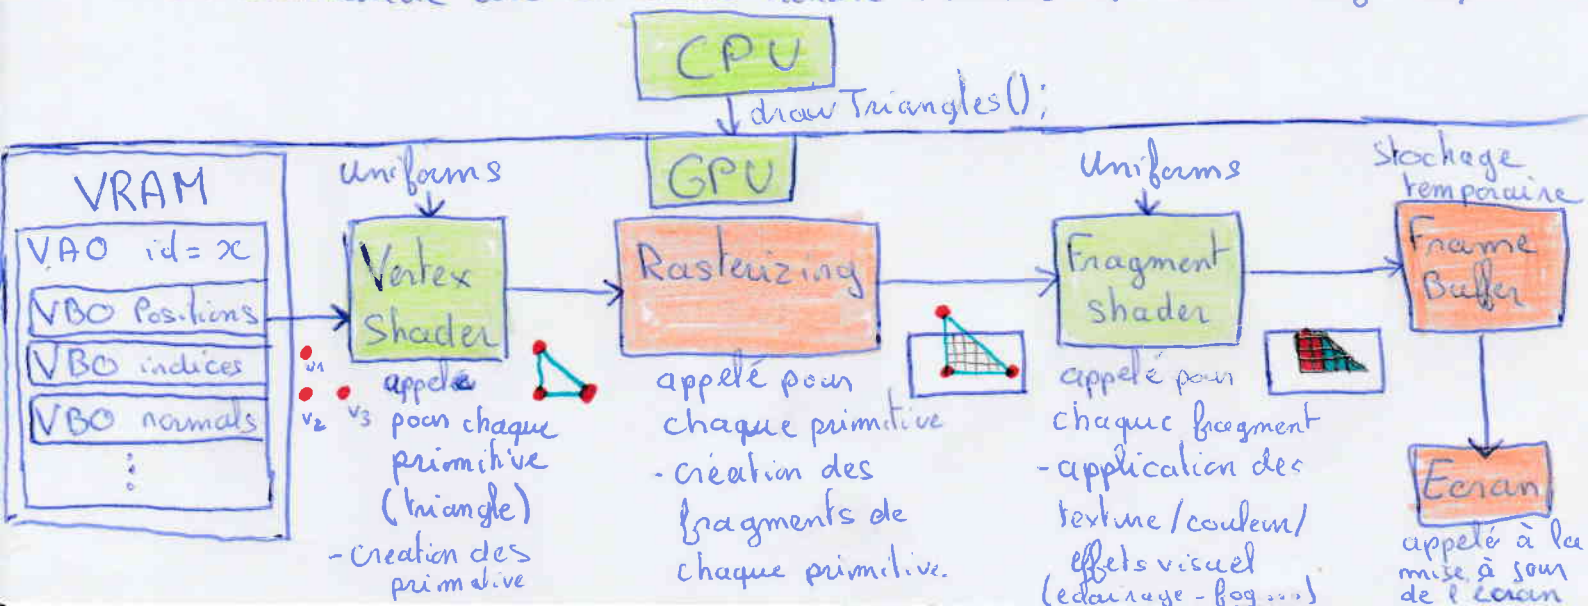 CPU
draw Triangles();
GPU
VRAM
VAO id = x
VBO Positions
VBO indices
VBO normals
v1
v2
v3
Uniforms
Vertex
Shader
appelé
pour chaque
primitive
(triangle)
- creation des
primative
Rasterizing
appelé pour
chaque primitive
- création des
fragments de
chaque primitive.
Uniforms
Fragment
shader
appelé pour
chaque fragment
- application des
texture/couleur/
effets visuel
(eclairage - fog ...)
Stockage
temporaire
Frame
Buffer
Ecran
appelé à la
mise à jour
de l'écran